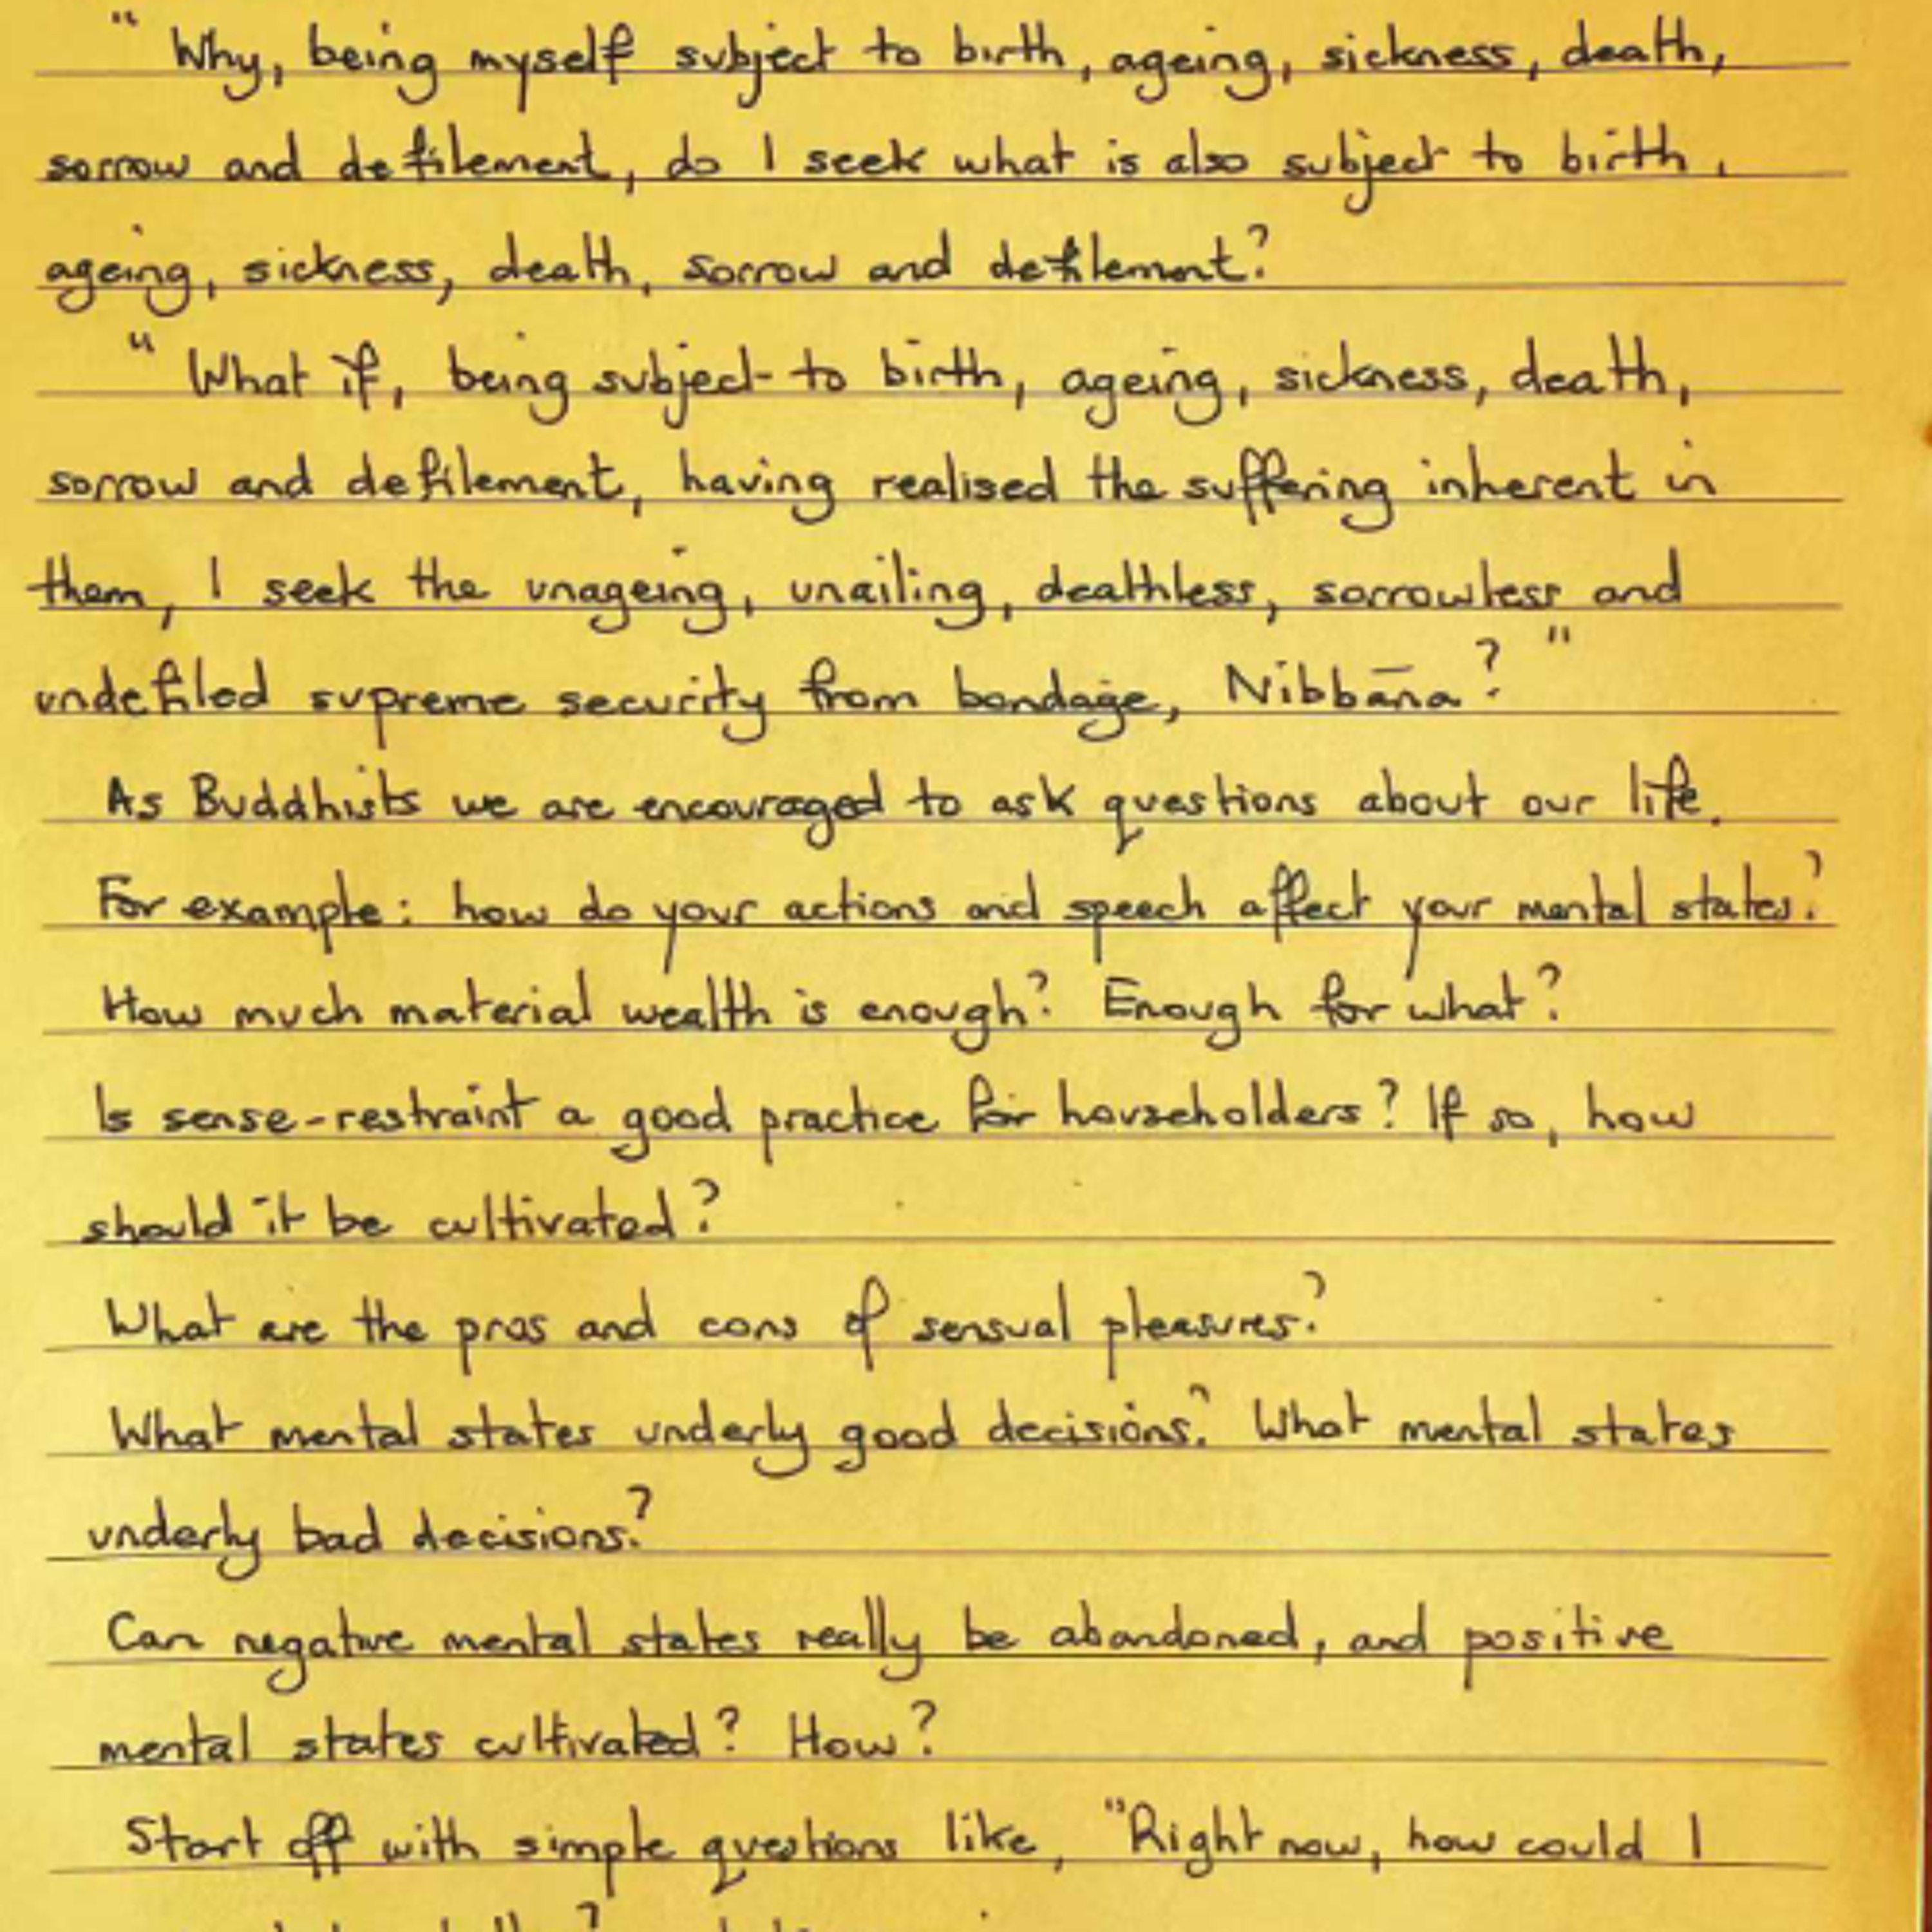 " Why, being myself subject to birth, ageing, sickness, death,
sorrow and defilement, do I seek what is also subject to birth,
ageing, sickness, death, sorrow and defilement?
" What if, being subject to birth, ageing, sickness, death,
sorrow and defilement, having realised the suffering inherent in
them, I seek the unageing, unailing, deathless, sorrowless and
undefiled supreme security from bondage, Nibbāna? "
As Buddhists we are encouraged to ask questions about our life.
For example: how do your actions and speech affect your mental states?
How much material wealth is enough? Enough for what?
Is sense-restraint a good practice for householders? If so, how
should it be cultivated?
What are the pros and cons of sensual pleasures?
What mental states underly good decisions? What mental states
underly bad decisions?
Can negative mental states really be abandoned, and positive
mental states cultivated? How?
Start off with simple questions like, "Right now, how could I